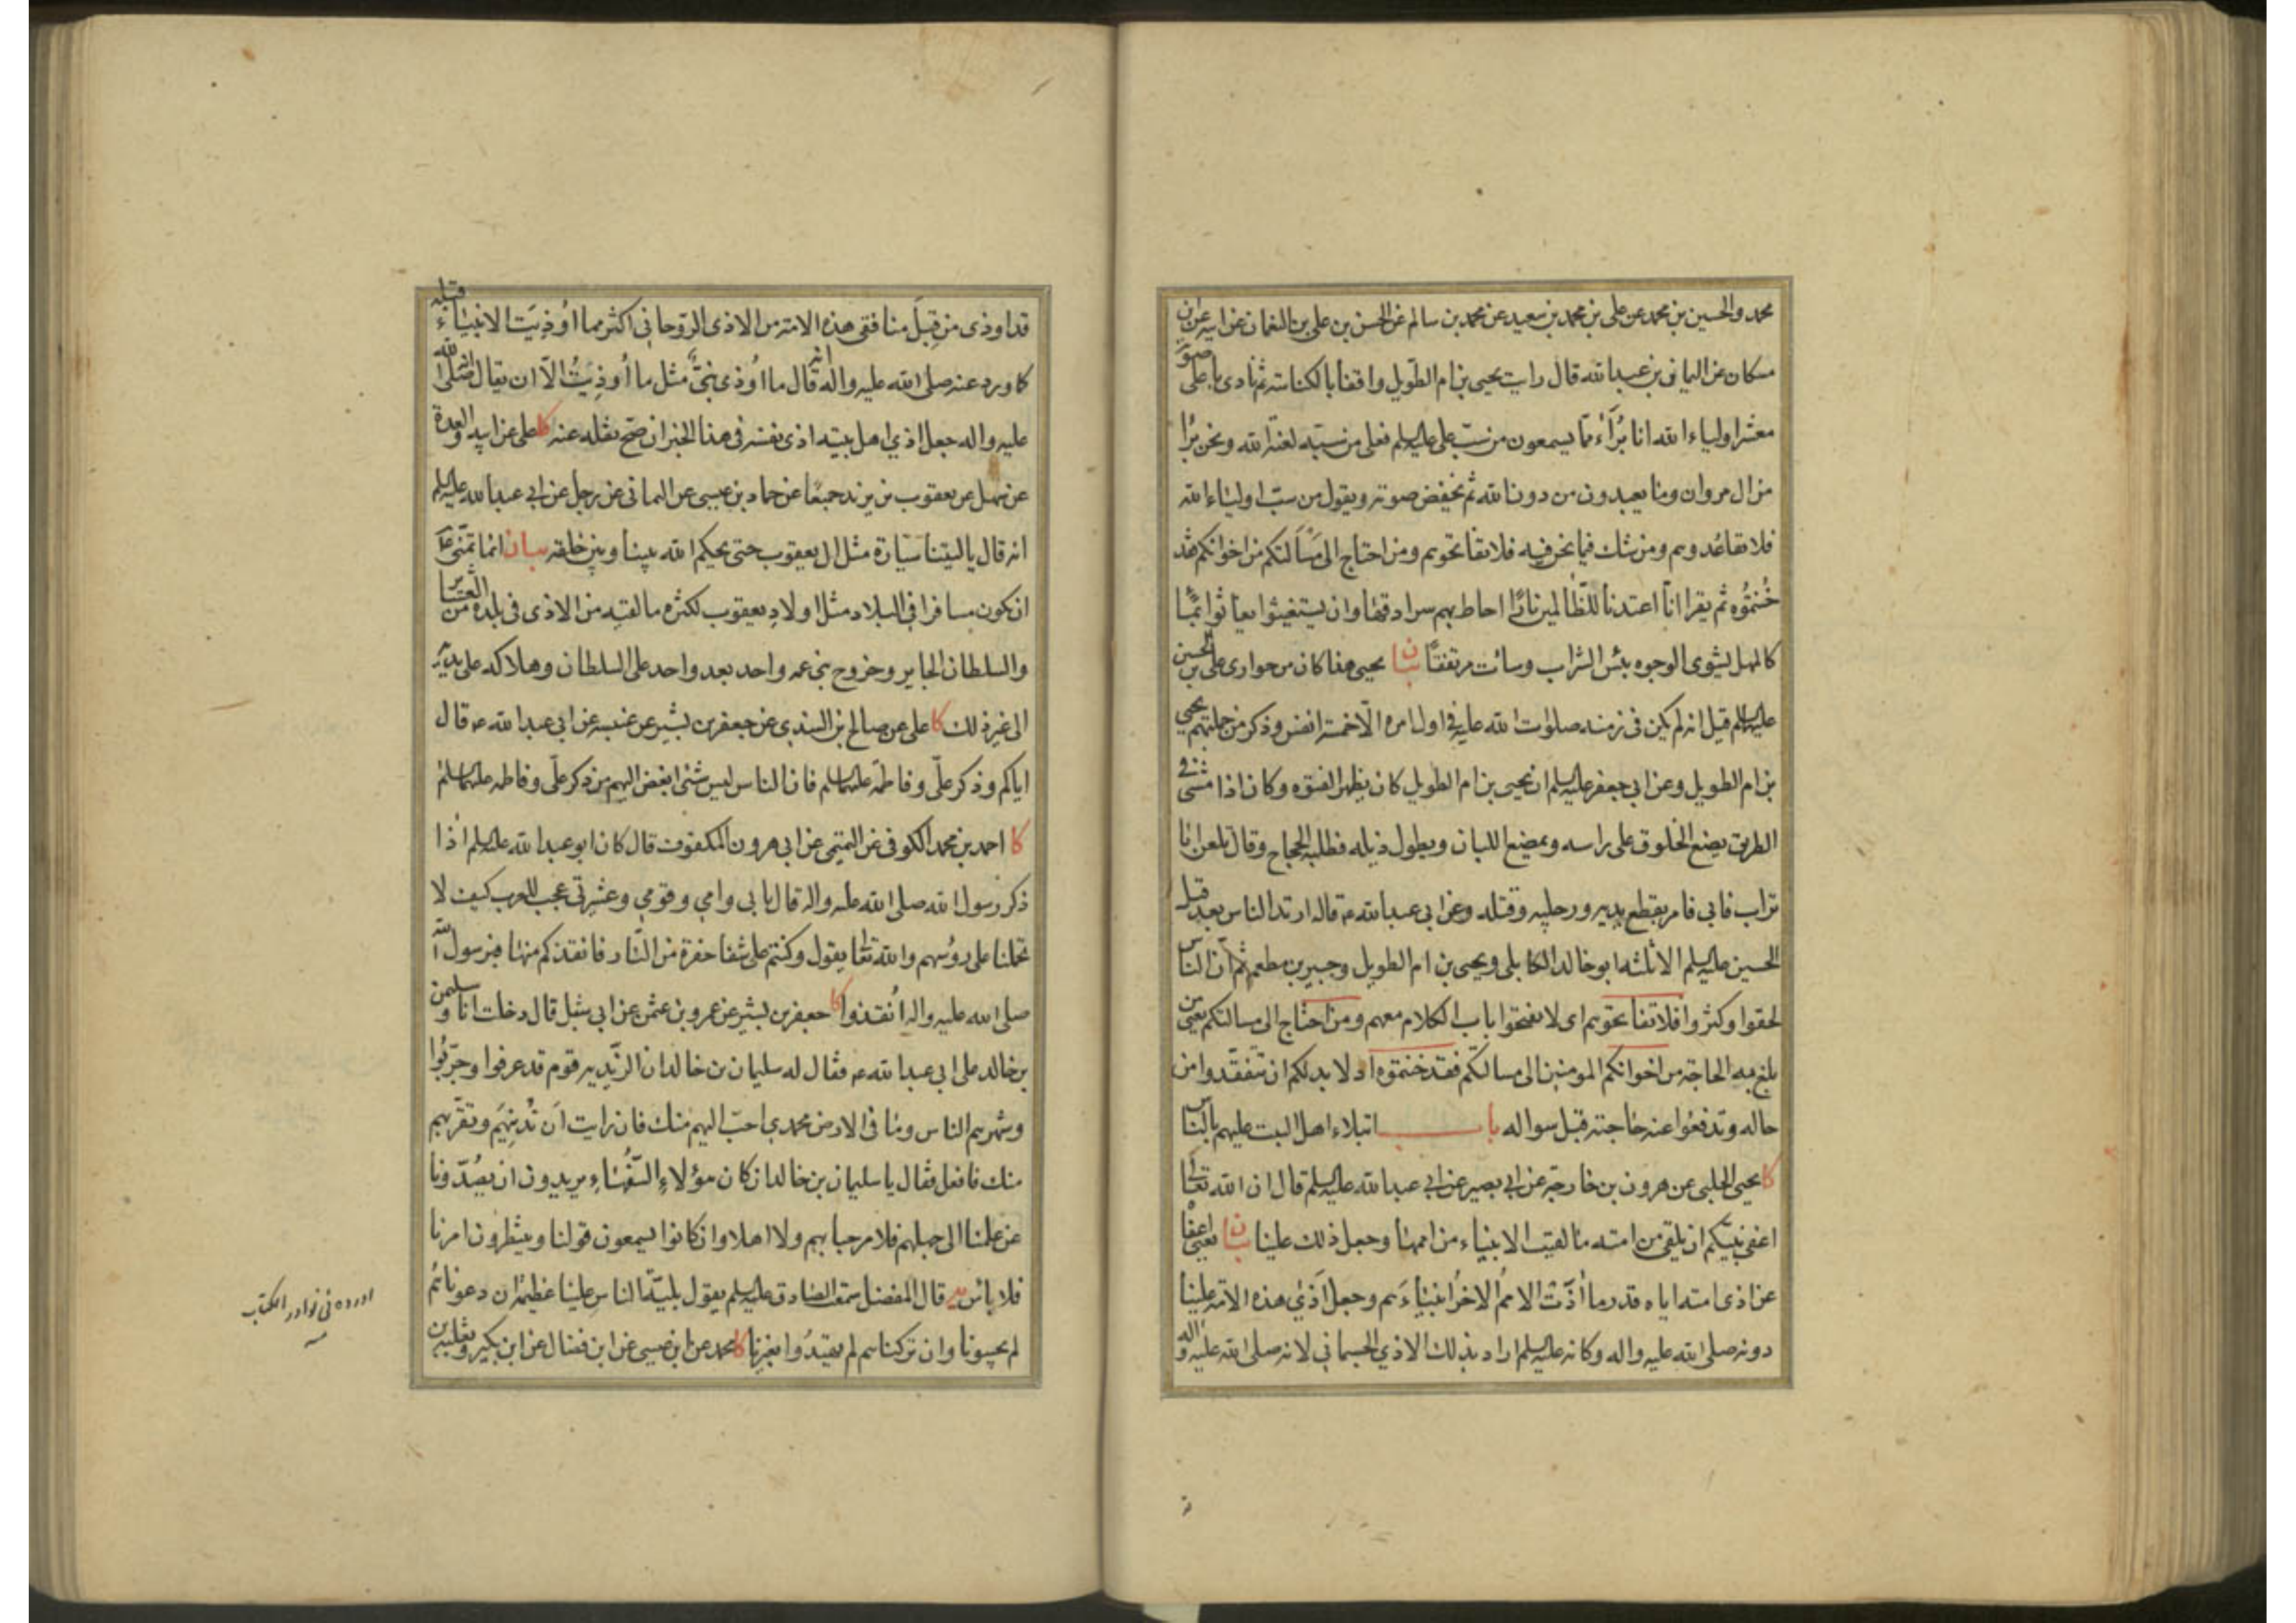 محمد والحسين بن محمد عن علي بن محمد بن سعيد عن محمد بن سالم عن الحسن بن علي بن النعمان عن ابيه عن ابن
مسكان عن اليماني بن عبيد الله قال رايت يحيى بن ام الطويل واقفا بالكناسة ثم نادى باعلى صوته
معشر اولياء الله انا برآء مما يسمعون من سب علي عليه السلم فعلى من سبه لعنة الله ونحن برآ
من ال مروان وما يعبدون من دون الله ثم يخفض صوته ويقول من سب اولياء الله
فلا تقاعدوهم ومن شك فيما نحن فيه فلا تفاتحوهم ومن احتاج الى مسألتكم من اخوانكم فقد
خنتموه ثم يقرا انا اعتدنا للظالمين نارا احاط بهم سرادقها وان يستغيثوا يغاثوا بماء
كالمهل يشوي الوجوه بئس الشراب وساءت مرتفقا بيان يحيى هذا كان من حواري علي بن الحسين
عليه السلم قيل انه لم يكن في زمنه صلوات الله عليه في اول امره الا خمسة انفس وذكر من جملتهم يحيى
بن ام الطويل وعن ابي جعفر عليه السلم ان يحيى بن ام الطويل كان يظهر الفتوه وكان اذا مشى في
الطريق يضع الخلوق على راسه ويمضغ اللبان ويطول ذيله فطلبه الحجاج وقال تلعن ابا
تراب فابى فامر بقطع يديه ورجليه وقتله وعن ابي عبد الله ع قال ارتد الناس بعد قتل
الحسين عليه السلم الا ثلثه ابو خالد الكابلي ويحيى بن ام الطويل وجبير بن مطعم ثم ان الناس
لحقوا وكثروا فلا تفاتحوهم اي لا تفتحوا باب الكلام معهم ومن احتاج الى مسالتكم يعني من
بلغ به الحاجة من اخوانكم المومنين الى مسالتكم فقد خنتموه اذ لا بد لكم ان تتفقدوا من
حاله وتدفعوا عنه حاجته قبل سواله باب ابتلاء اهل البيت عليهم بالناس
كا يحيى الحلبي عن هرون بن خارجة عن ابي بصير عن ابي عبد الله عليه السلم قال ان الله تعالى
اعفى نبيكم ان يلقى من امته ما لقيت الانبياء من اممها وجعل ذلك علينا بيان يعني اعفا
عن اذى امته اياه قدر ما أذت الامم الاخر انبياءهم وجعل أذي هذه الامة علينا
دونه صلى الله عليه واله وكانه عليه السلم اراد بذلك الاذي الجسماني لانه صلى الله عليه واله
قد اوذى من قبل منافقي هذه الامة من الاذى الروحاني اكثر مما اوذيت الانبياء قبله
كما ورد عنه صلى الله عليه واله انه قال ما اوذى نبي مثل ما أوذيت الا ان يقال انه صلى الله
عليه واله جعل اذي اهل بيته اذى نفسه في هذا الخبر ان صح نقله عنه كا علي عن ابيه والعدة
عن سهل عن يعقوب بن يزيد جميعا عن حماد بن عيسى عن اليماني عن رجل عن ابي عبد الله عليه السلم
انه قال يا ليتنا سيارة مثل ال يعقوب حتى يحكم الله بيننا وبين خلقه بيان انما تمنى ع
ان يكون مسافرا في البلاد مثل اولاد يعقوب لكثره ما لقيه من الاذى في بلده من العشاير
والسلطان الجاير وخروج بني عمه واحد بعد واحد على السلطان وهلاكه على يديه
الى غير ذلك كا علي عن صالح بن السندي عن جعفر بن بشير عن عنبسه عن ابي عبد الله ع قال
اياكم وذكر علي وفاطمة عليهما السلم فان الناس ليس شئ ابغض اليهم من ذكر علي وفاطمه عليهما السلم
كا احمد بن محمد الكوفي عن التيمي عن ابي هرون المكفوف قال كان ابو عبد الله عليه السلم اذا
ذكر رسول الله صلى الله عليه واله قال بابي وامي وقومي وعشيرتي عجب للعرب كيف لا
تحملنا على رؤسهم والله تعالى يقول وكنتم على شفا حفرة من النار فانقذكم منها فبرسول الله
صلى الله عليه واله أنقذوا كا جعفر بن بشير عن عمرو بن عثمن عن ابي شبل قال دخلت انا وسليمن
بن خالد على ابي عبد الله ع فقال له سليمان بن خالد ان الزيديه قوم قد عرفوا وجربوا
وشهرهم الناس وما في الارض محمدي احب اليهم منك فان رايت أن تدنيهم وتقربهم
منك فافعل فقال يا سليمان بن خالد ان كان هؤلاء السفهاء يريدون ان يصدونا
عن علمنا الى جهلهم فلا مرحبا بهم ولا اهلا وان كانوا يسمعون قولنا وينتظرون امرنا
فلا باس يه قال المفضل سمعت الصادق عليه السلم يقول بلية الناس علينا عظيمة ان دعوناهم
لم يجيبونا وان تركناهم لم يهتدوا بغيرنا كا محمد عن ابن عيسى عن ابن فضال عن ابن بكير وثعلبه بن
اورده في نوادر الكتاب